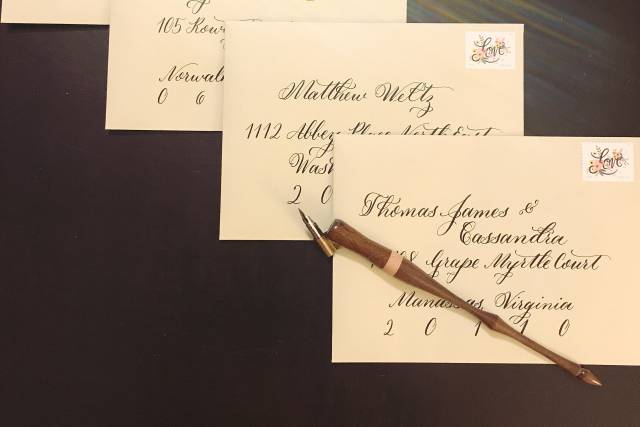 105
Norwalk
0 6
Love
Matthew Weltz
1112 Abbey Place North East
2 0
Love
Thomas James &
Cassandra
Grape Myrtle Court
Manassas, Virginia
2 0 1 1 0